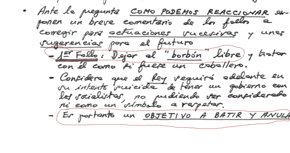 • Ante la pregunta COMO PODEMOS REACCIONAR se
ponen un breve comentario de los fallos a
corregir para actuaciones sucesivas y unas
sugerencias para el futuro
- 1er Fallo: Dejar al "borbón libre" y tratar
con él como si fuese un caballero.
- Considera que el Rey seguirá adelante en
su intento suicida de tener un gobierno con
los socialistas, no pudiendo ser considerado
ni como un símbolo a respetar.
- Es por tanto un OBJETIVO A BATIR Y ANULA